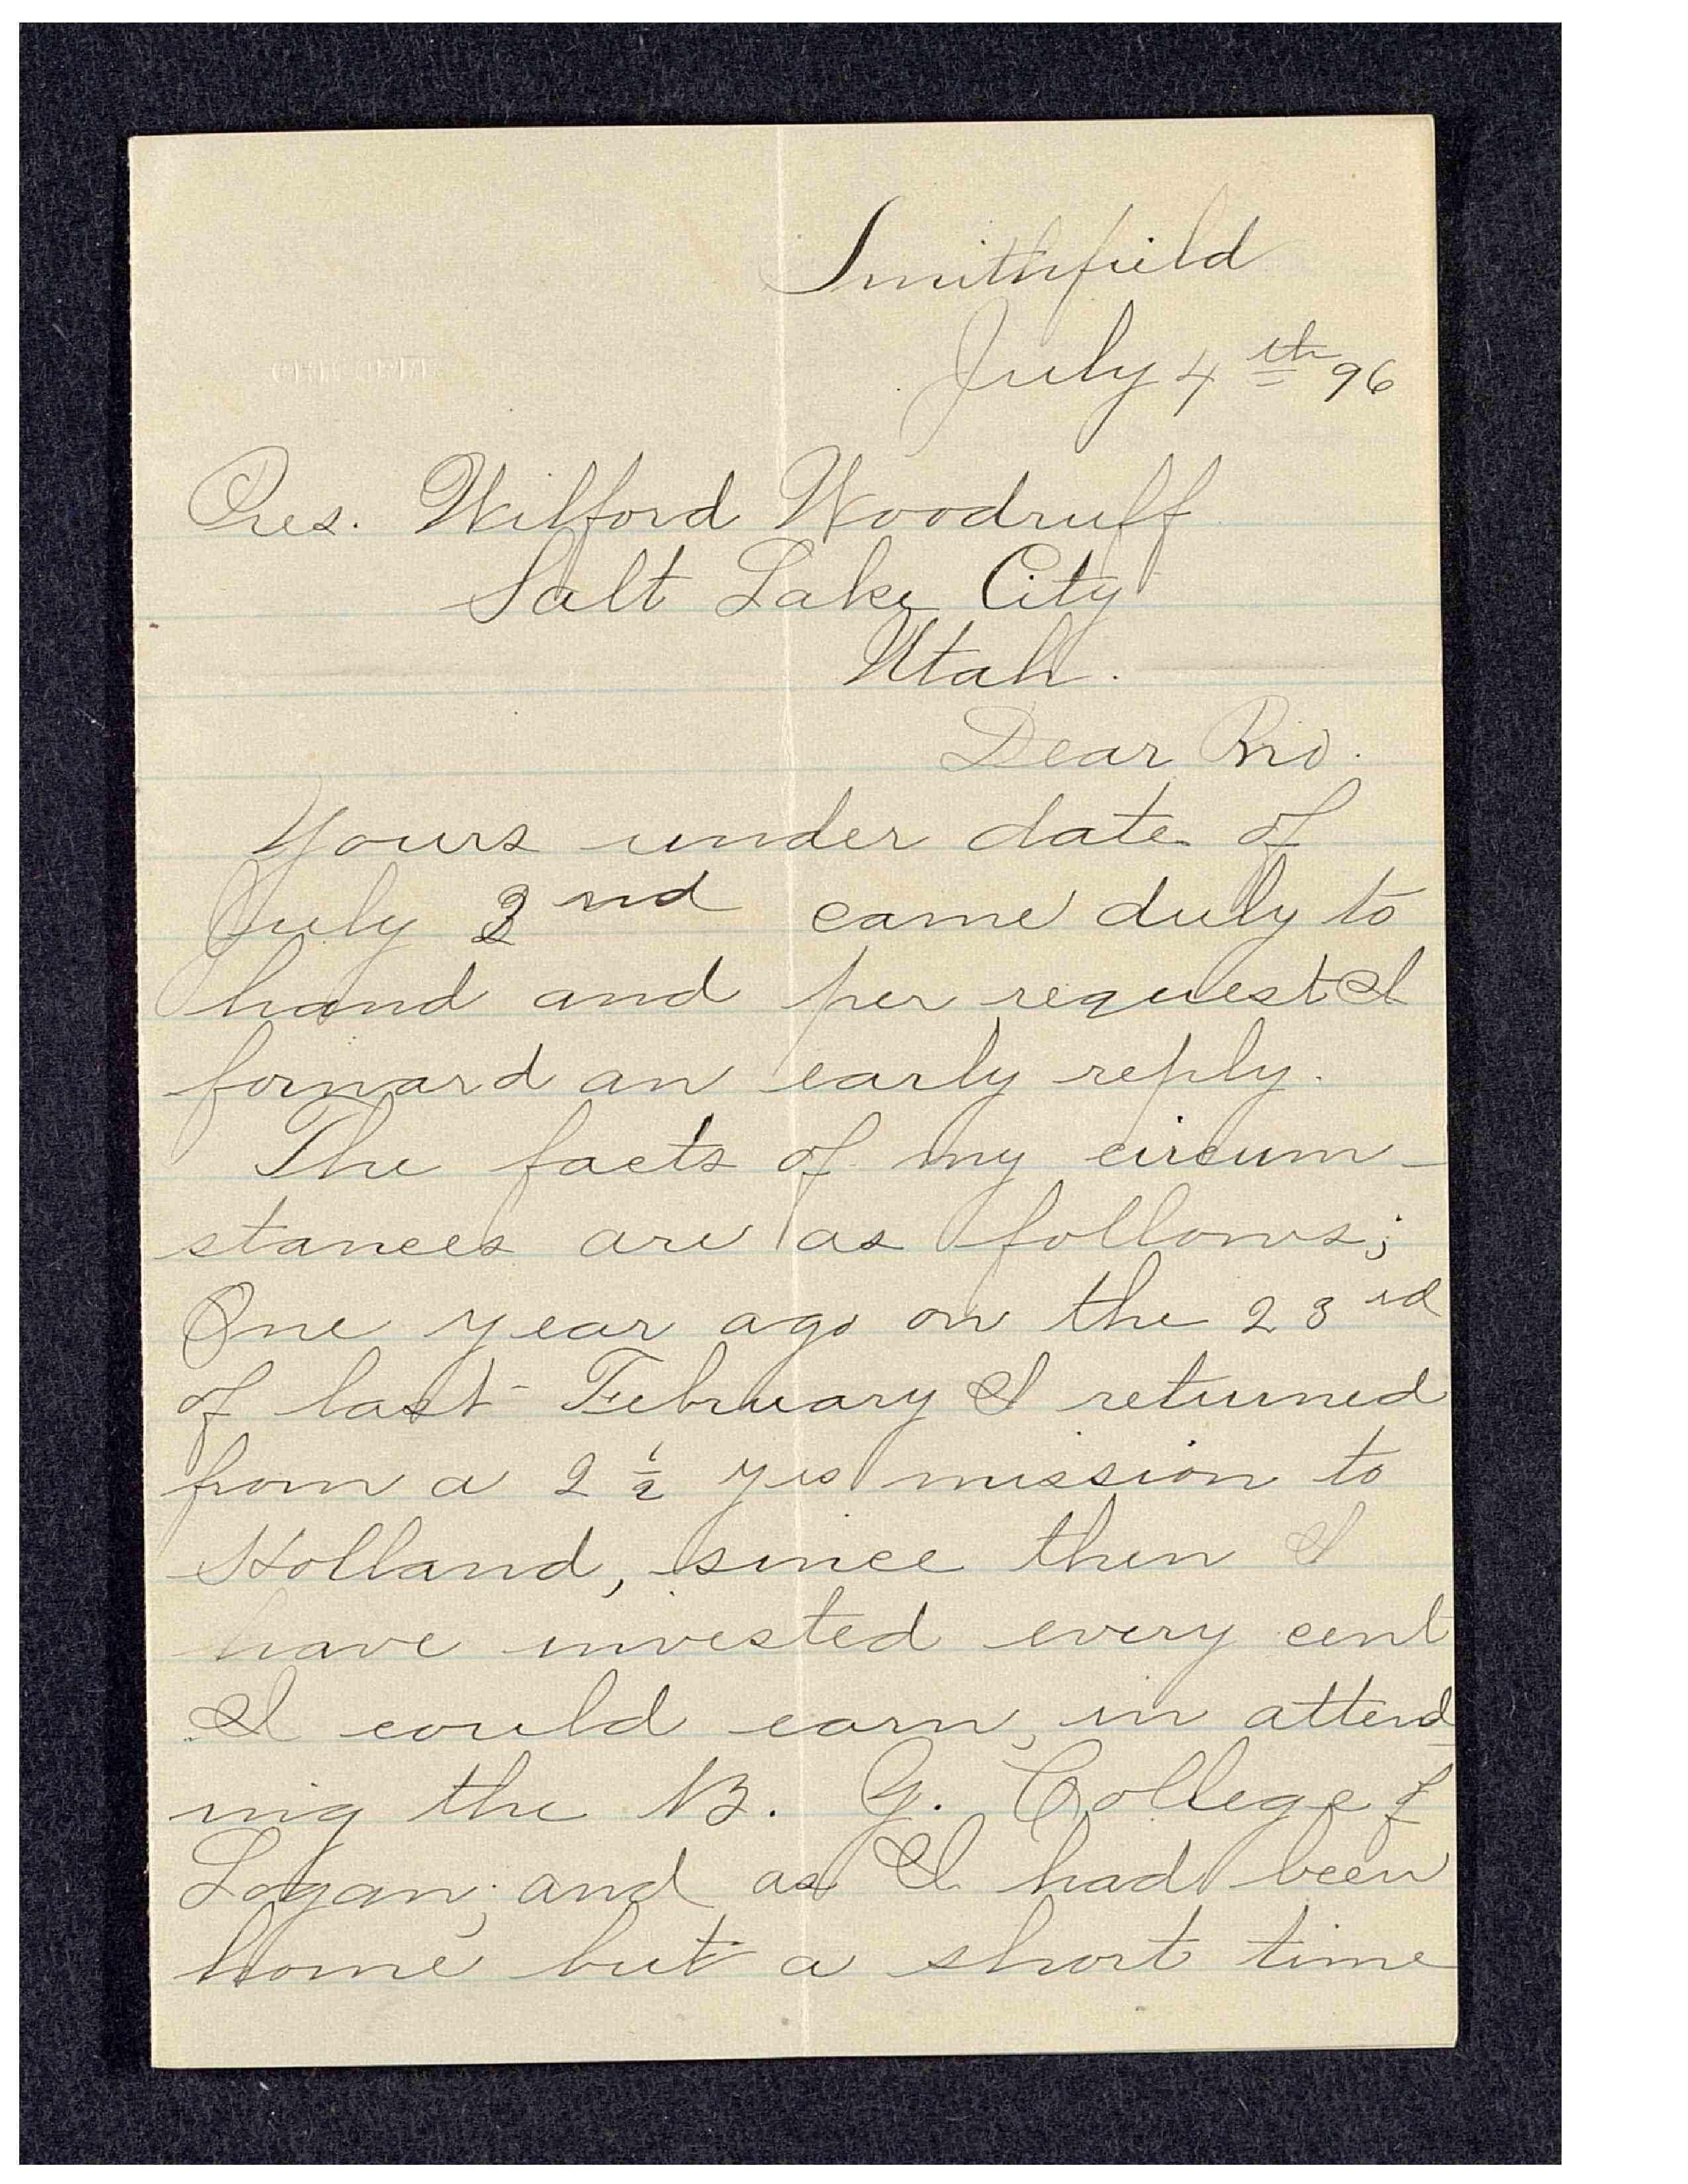 Smithfield
July 4th 96
Pres. Wilford Woodruff
Salt Lake City
Utah.
Dear Bro.
Yours under date of
July 2nd came duly to
hand and per request I
forward an early reply.
The facts of my circum-
stances are as follows;
One year ago on the 23rd
of last February I returned
from a 2 1/2 yrs mission to
Holland, since then I
have invested every cent
I could earn, in attend-
ing the B. Y. College of
Logan; and as I had been
home but a short time